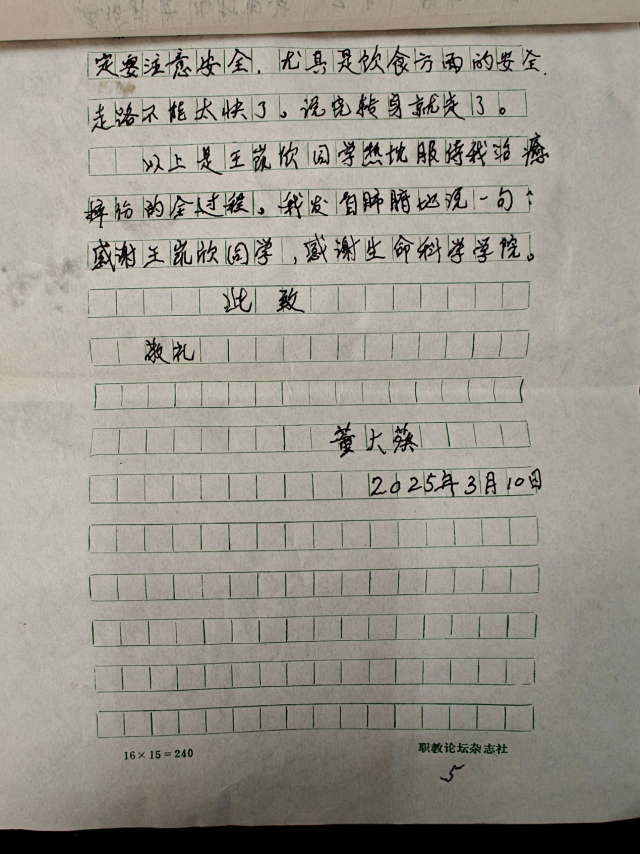 定要注意安全，尤其是饮食方面的安全，
走路不能太快了。说完转身就走了。
以上是王崑欣同学热忱服侍我治愈
摔伤的全过程。我发自肺腑地说一句：
感谢王崑欣同学，感谢生命科学学院。
此致
敬礼
董大葵
2025年3月10日
16×15=240
职教论坛杂志社
5